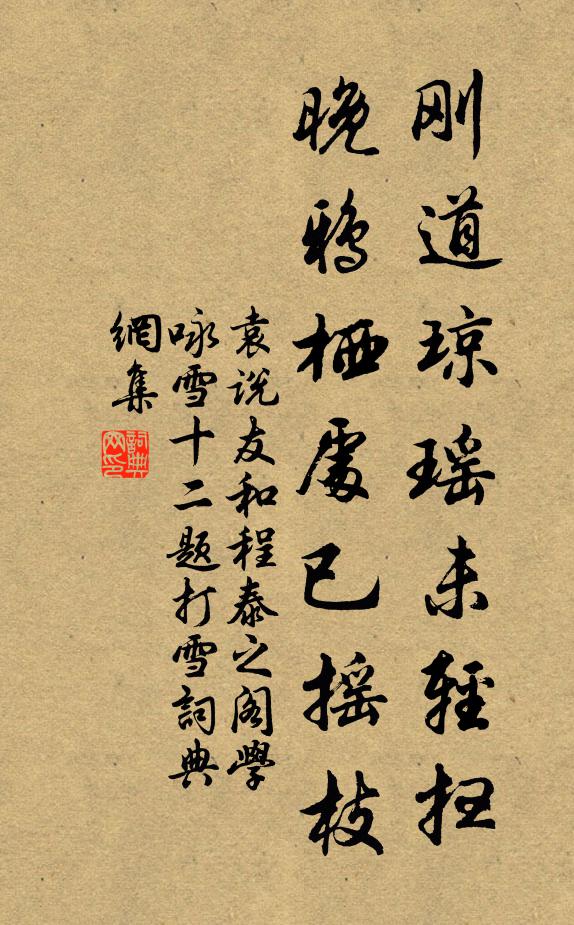 刚道琼瑶未轻扫
晚鸦栖处已摇枝
袁说友和程泰之阁学
咏雪十二题打雪詞典
網集
詞典网印